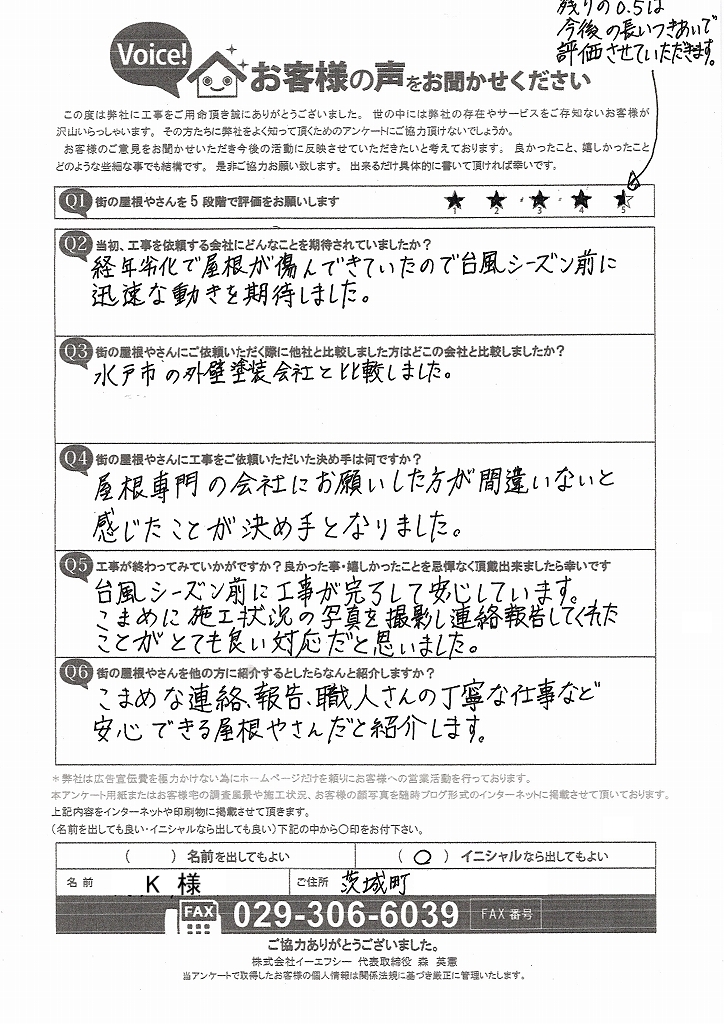 残りの0.5は
今後の長いつきあいで
評価させていただきます。
Voice!
お客様の声をお聞かせください
この度は弊社に工事をご用命頂き誠にありがとうございました。 世の中には弊社の存在やサービスをご存知ないお客様が
沢山いらっしゃいます。 その方たちに弊社をよく知って頂くためのアンケートにご協力頂けないでしょうか。
お客様のご意見をお聞かせいただき今後の活動に反映させていただきたいと考えております。 良かったこと、嬉しかったこと
どのような些細な事でも結構です。 是非ご協力お願い致します。 出来るだけ具体的に書いて頂ければ幸いです。
Q1 街の屋根やさんを5段階で評価をお願いします
★ ★ ★ ★ ☆
1 2 3 4 5
Q2 当初、工事を依頼する会社にどんなことを期待されていましたか?
経年劣化で屋根が傷んできていたので台風シーズン前に
迅速な動きを期待しました。
Q3 街の屋根やさんにご依頼いただく際に他社と比較しました方はどこの会社と比較しましたか?
水戸市の外壁塗装会社と比較しました。
Q4 街の屋根やさんに工事をご依頼いただいた決め手は何ですか?
屋根専門の会社にお願いした方が間違いないと
感じたことが決め手となりました。
Q5 工事が終わってみていかがですか?良かった事・嬉しかったことを忌憚なく頂戴出来ましたら幸いです
台風シーズン前に工事が完了して安心しています。
こまめに施工状況の写真を撮影し連絡報告してくれた
ことがとても良い対応だと思いました。
Q6 街の屋根やさんを他の方に紹介するとしたらなんと紹介しますか?
こまめな連絡、報告、職人さんの丁寧な仕事など
安心できる屋根やさんだと紹介します。
＊弊社は広告宣伝費を極力かけない為にホームページだけを頼りにお客様への営業活動を行っております。
本アンケート用紙またはお客様宅の調査風景や施工状況、お客様の顔写真を随時ブログ形式のインターネットに掲載させて頂いております。
上記内容をインターネットや印刷物に掲載させて頂きます。
（名前を出しても良い・イニシャルなら出しても良い）下記の中から〇印をお付下さい。
（　　）名前を出してもよい （ 〇 ）イニシャルなら出してもよい
名前 K 様 ご住所 茨城町
FAX 029-306-6039 FAX番号
ご協力ありがとうございました。
株式会社イーエフシー 代表取締役 森 英憲
当アンケートで取得したお客様の個人情報は関係法規に基づき厳正に管理いたします。